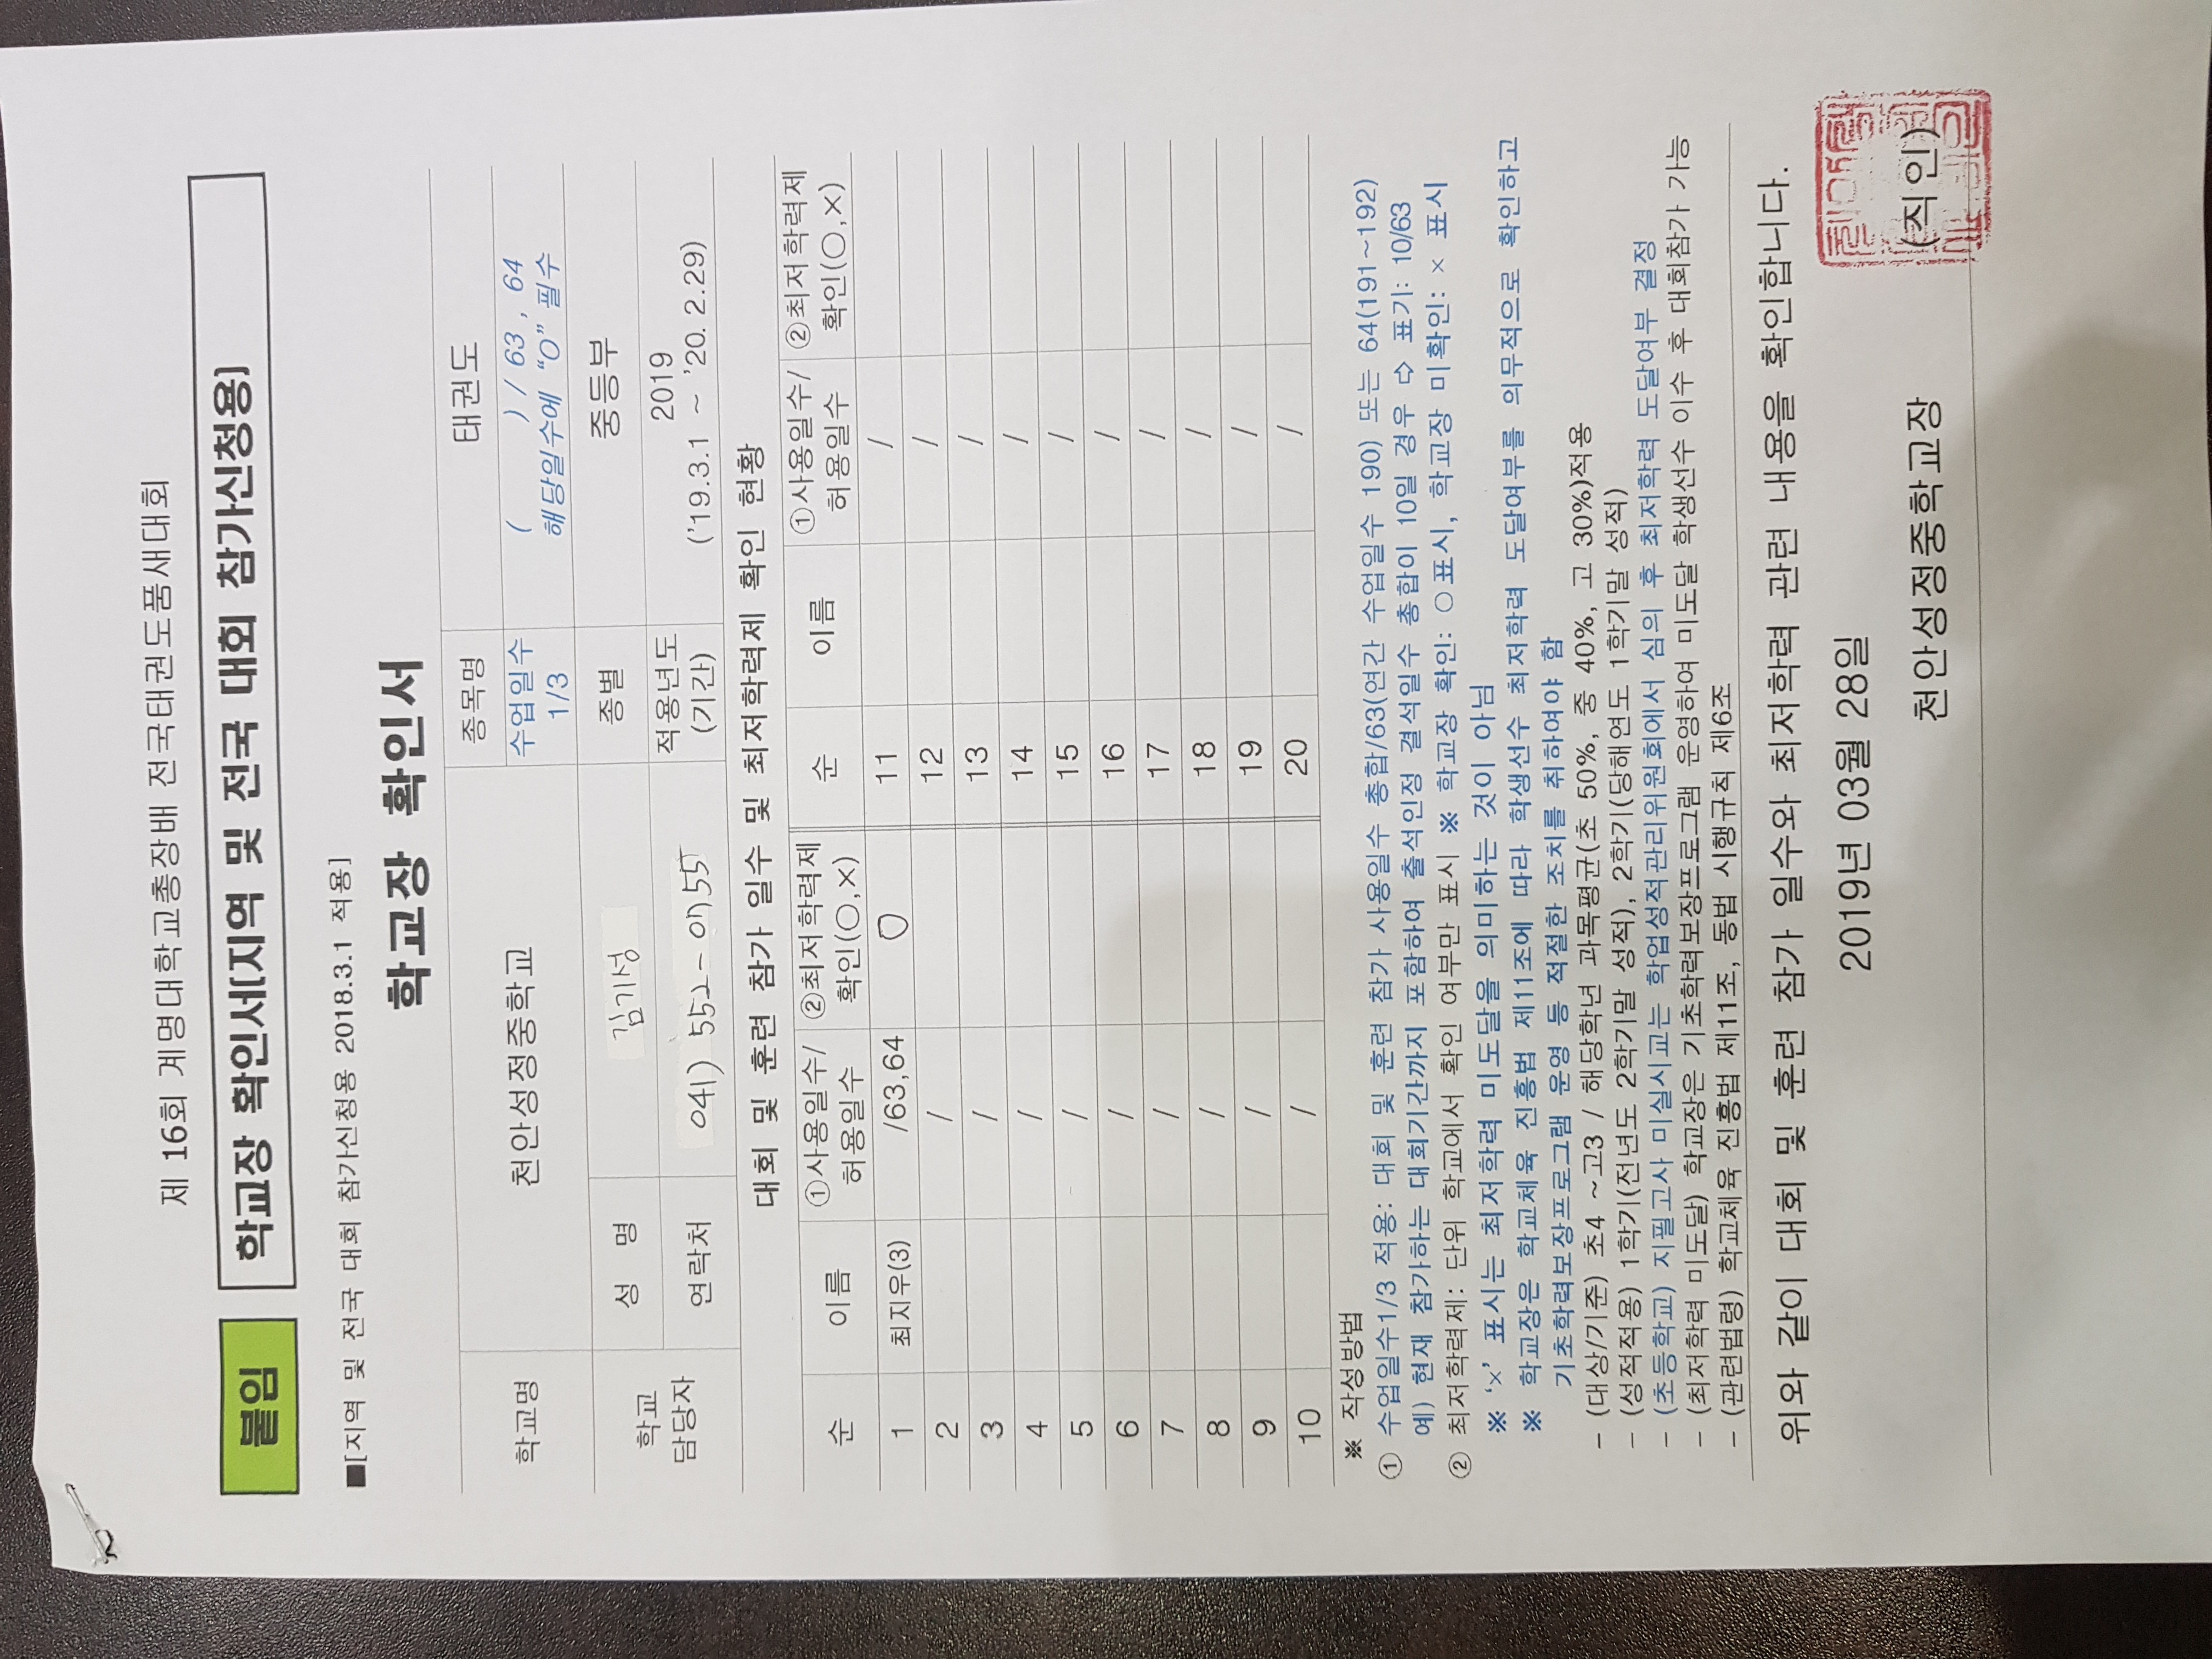 제 16회 계명대학교총장배 전국태권도품새대회
붙임 학교장 확인서(지역 및 전국 대회 참가신청용)
■[지역 및 전국 대회 참가신청용 2018.3.1 적용]
학교장 확인서
학교명 천안성정중학교 종목명 태권도
수업일수 1/3 ( ) / 63 , 64
해당일수에 “O” 필수
학교 담당자 성 명 김기성 종별 중등부
연락처 041) 552-0755 적용년도 (기간) 2019
('19.3.1 ~ '20. 2.29)
대회 및 훈련 참가 일수 및 최저학력제 확인 현황
순 이름 ①사용일수/허용일수 ②최저학력제 확인(○,×) 순 이름 ①사용일수/허용일수 ②최저학력제 확인(○,×)
1 최지우(3) /63,64 O 11 /
2 / 12 /
3 / 13 /
4 / 14 /
5 / 15 /
6 / 16 /
7 / 17 /
8 / 18 /
9 / 19 /
10 / 20 /
※ 작성방법
① 수업일수1/3 적용: 대회 및 훈련 참가 사용일수 총합/63(연간 수업일수 190) 또는 64(191~192)
예) 현재 참가하는 대회기간까지 포함하여 출석인정 결석일수 총합이 10일 경우 ⇨ 표기: 10/63
② 최저학력제: 단위 학교에서 확인 여부만 표시 ※ 학교장 확인: ○표시, 학교장 미확인: × 표시
※ ‘×’ 표시는 최저학력 미도달을 의미하는 것이 아님
※ 학교장은 학교체육 진흥법 제11조에 따라 학생선수 최저학력 도달여부를 의무적으로 확인하고
기초학력보장프로그램 운영 등 적절한 조치를 취하여야 함
- (대상/기준) 초4 ~고3 / 해당학년 과목평균(초 50%, 중 40%, 고 30%)적용
- (성적적용) 1학기(전년도 2학기말 성적), 2학기(당해연도 1학기말 성적)
- (초등학교) 지필고사 미실시교는 학업성적관리위원회에서 심의 후 최저학력 도달여부 결정
- (최저학력 미도달) 학교장은 기초학력보장프로그램 운영하여 미도달 학생선수 이수 후 대회참가 가능
- (관련법령) 학교체육 진흥법 제11조, 동법 시행규칙 제6조
위와 같이 대회 및 훈련 참가 일수와 최저학력 관련 내용을 확인합니다.
2019년 03월 28일
천안성정중학교장 (직인)